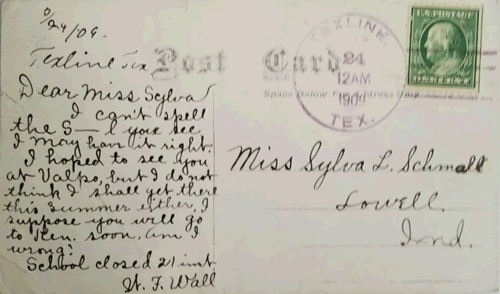 5/24/09.
Texline Tex
Post Card
Space Below For Address Only
TEXLINE,
24
12AM
1909
TEX.
Dear Miss Sylva
I can't spell
the S—l you see
I may have it right.
I hoped to see you
at Valpo, but I do not
think I shall get there
this summer either. I
suppose you will go
to Ken. soon. Am I
wrong?
School closed 21 inst.
W. F. Wall
Miss Sylva L. Schmall
Lowell,
Ind.